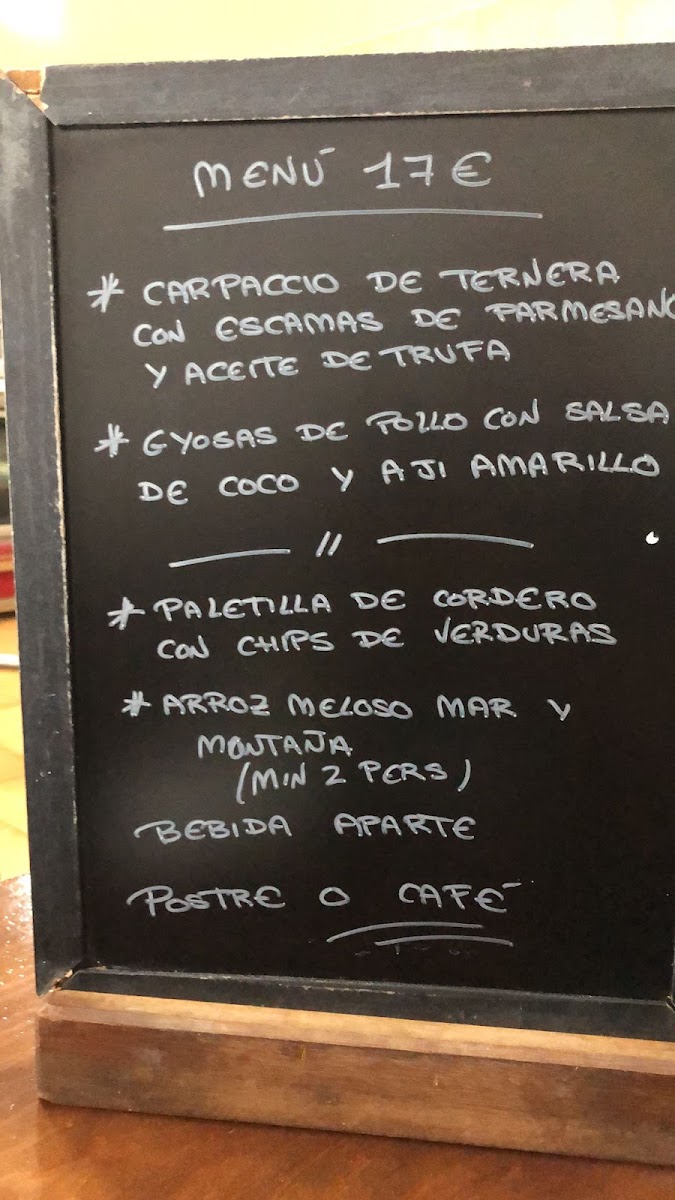 MENÚ 17€
* CARPACCIO DE TERNERA
CON ESCAMAS DE PARMESANO
Y ACEITE DE TRUFA
* GYOSAS DE POLLO CON SALSA
DE COCO Y AJI AMARILLO
//
* PALETILLA DE CORDERO
CON CHIPS DE VERDURAS
* ARROZ MELOSO MAR Y
MONTAÑA
(MIN 2 PERS)
BEBIDA APARTE
POSTRE O CAFÉ